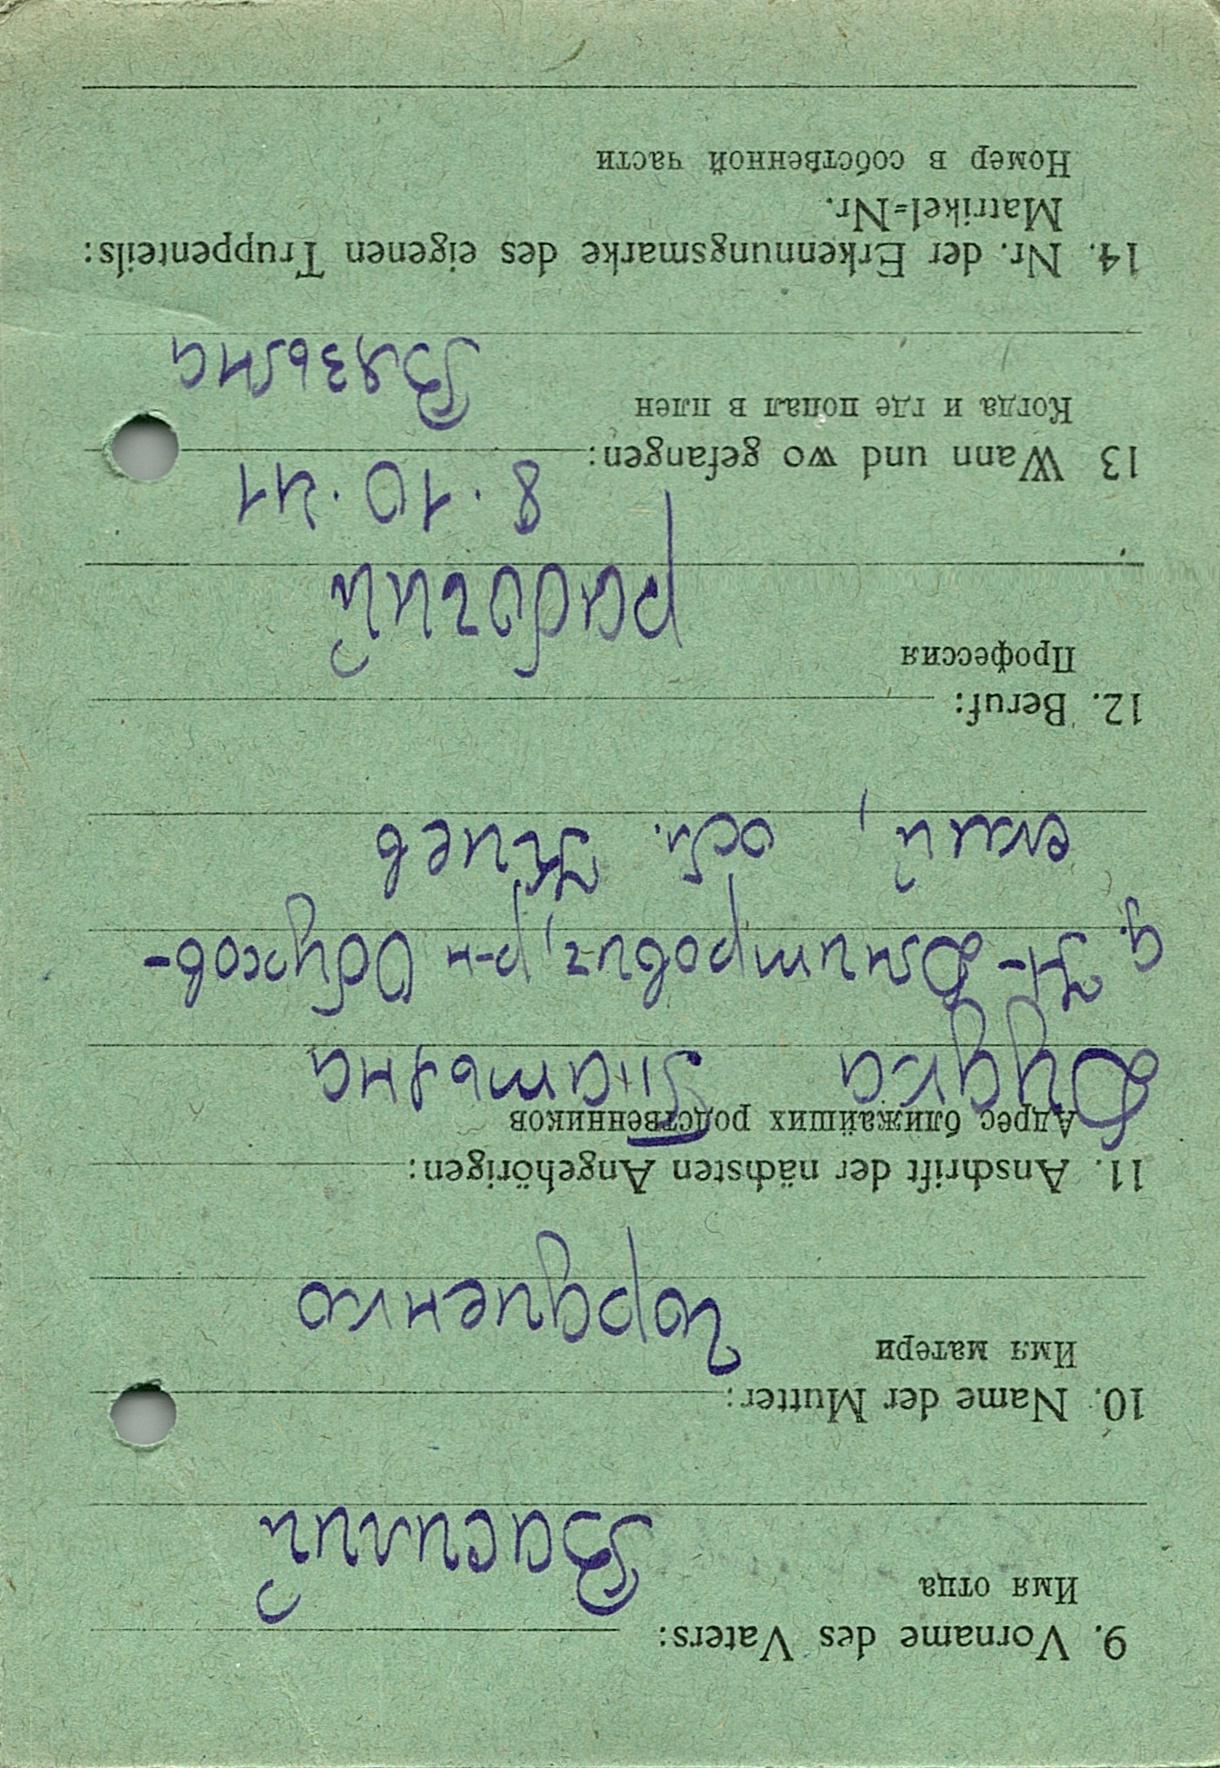 9. Vorname des Vaters:
Имя отца
Василий
10. Name der Mutter:
Имя матери
Гордиенко
11. Anschrift der nächsten Angehörigen:
Адрес ближайших родственников
Дудка Татьяна
д. Н-Дмитровиг, р-н Обухов-
ский, обл. Киев
12. Beruf:
Профессия
рабочий
8.10.41
13 Wann und wo gefangen:
Когда и где попал в плен
Вязьма
14. Nr. der Erkennungsmarke des eigenen Truppenteils:
Matrikel=Nr.
Номер в собственной части